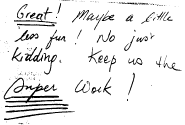 Great! Maybe a little
less fun! No just
kidding. Keep us the
Super Work!